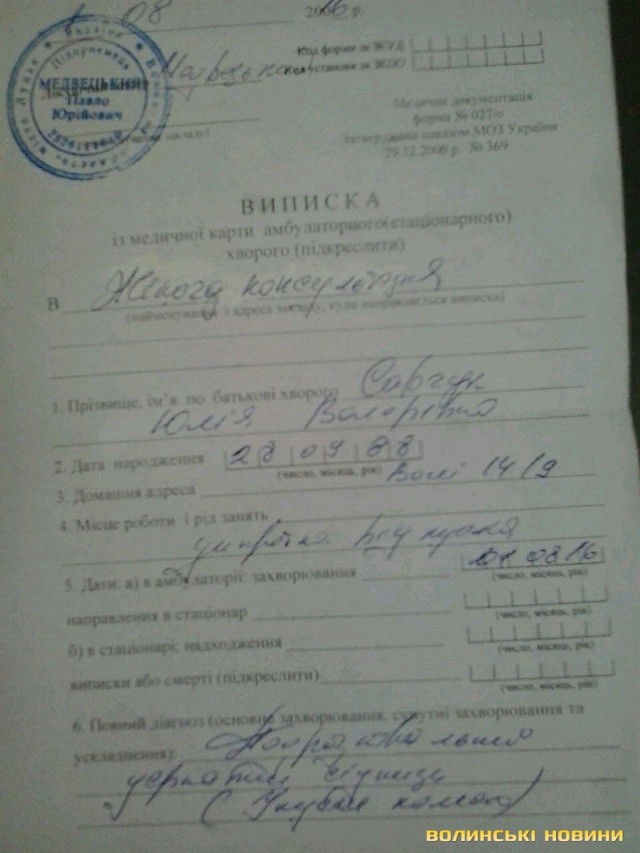 08 2016 р.
Код форми за ЗКУД
Код установи за ЗКПО
МЕДВЕЦЬКИЙ
Павло
Юрійович
Медична документація
форма № 027/о
Затверджена наказом МОЗ України
29.12.2000 р. № 369
ВИПИСКА
із медичної карти амбулаторного(стаціонарного)
хворого (підкреслити)
В Жіноча консультація
(найменування і адреса закладу, куди направляється виписка)
1. Прізвище, ім'я по батькові хворого Савчук
Юлія
2. Дата народження 28 09 88
(число, місяць, рік)
3. Домашня адреса Волі 14/9
4. Місце роботи і рід занять
5. Дати: а) в амбулаторії: захворювання 01 08 16
(число, місяць, рік)
направлення в стаціонар
(число, місяць, рік)
б) в стаціонарі: надходження
(число, місяць, рік)
виписки або смерті (підкреслити)
(число, місяць, рік)
6. Повний діагноз (основне захворювання, супутні захворювання та
ускладнення):
дерматит сідниці
ВОЛИНСЬКІ НОВИНИ